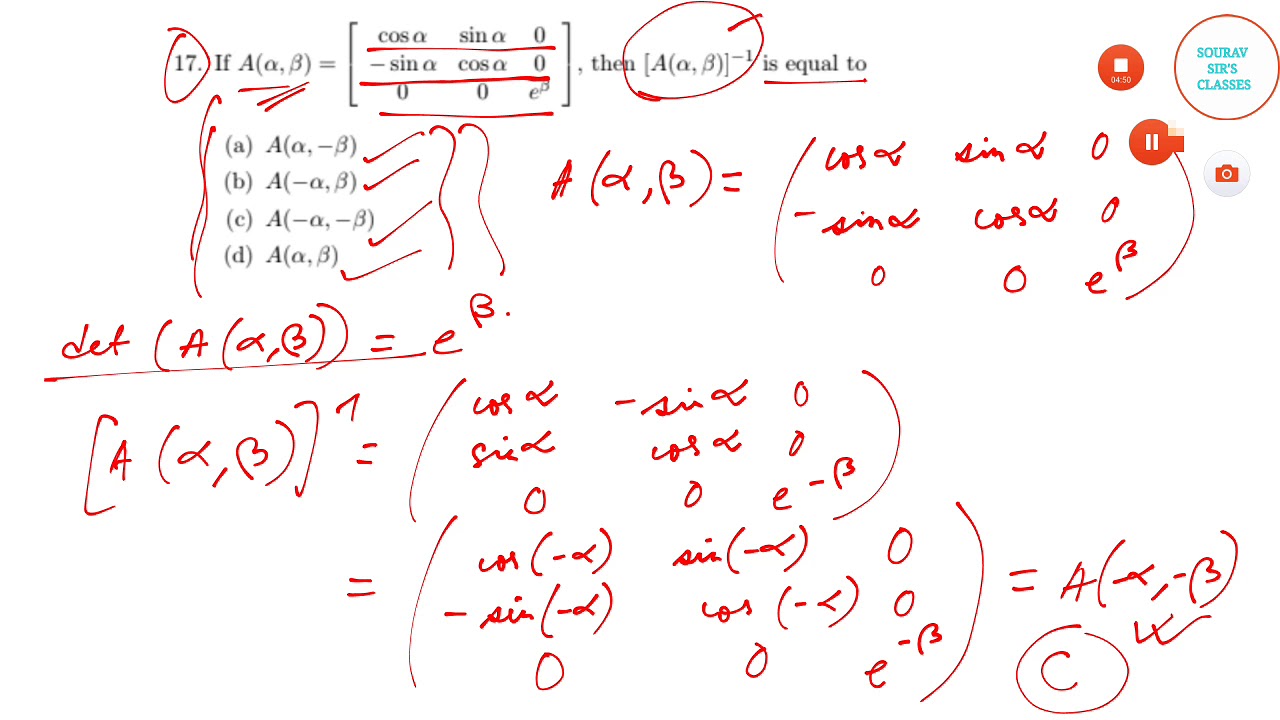 17. If A(α, β) = [ cos α sin α 0 ; − sin α cos α 0 ; 0 0 e^β ], then [A(α, β)]⁻¹ is equal to
(a) A(α, −β)
(b) A(−α, β)
(c) A(−α, −β)
(d) A(α, β)
SOURAV
SIR'S
CLASSES
04:50
A(α, β) = ( cos α sin α 0
− sin α cos α 0
0 0 e^β )
det (A(α, β)) = e^β.
[A(α, β)]⁻¹ = ( cos α − sin α 0
sin α cos α 0
0 0 e^−β )
= ( cos(−α) sin(−α) 0
− sin(−α) cos(−α) 0
0 0 e^−β ) = A(−α, −β)
C